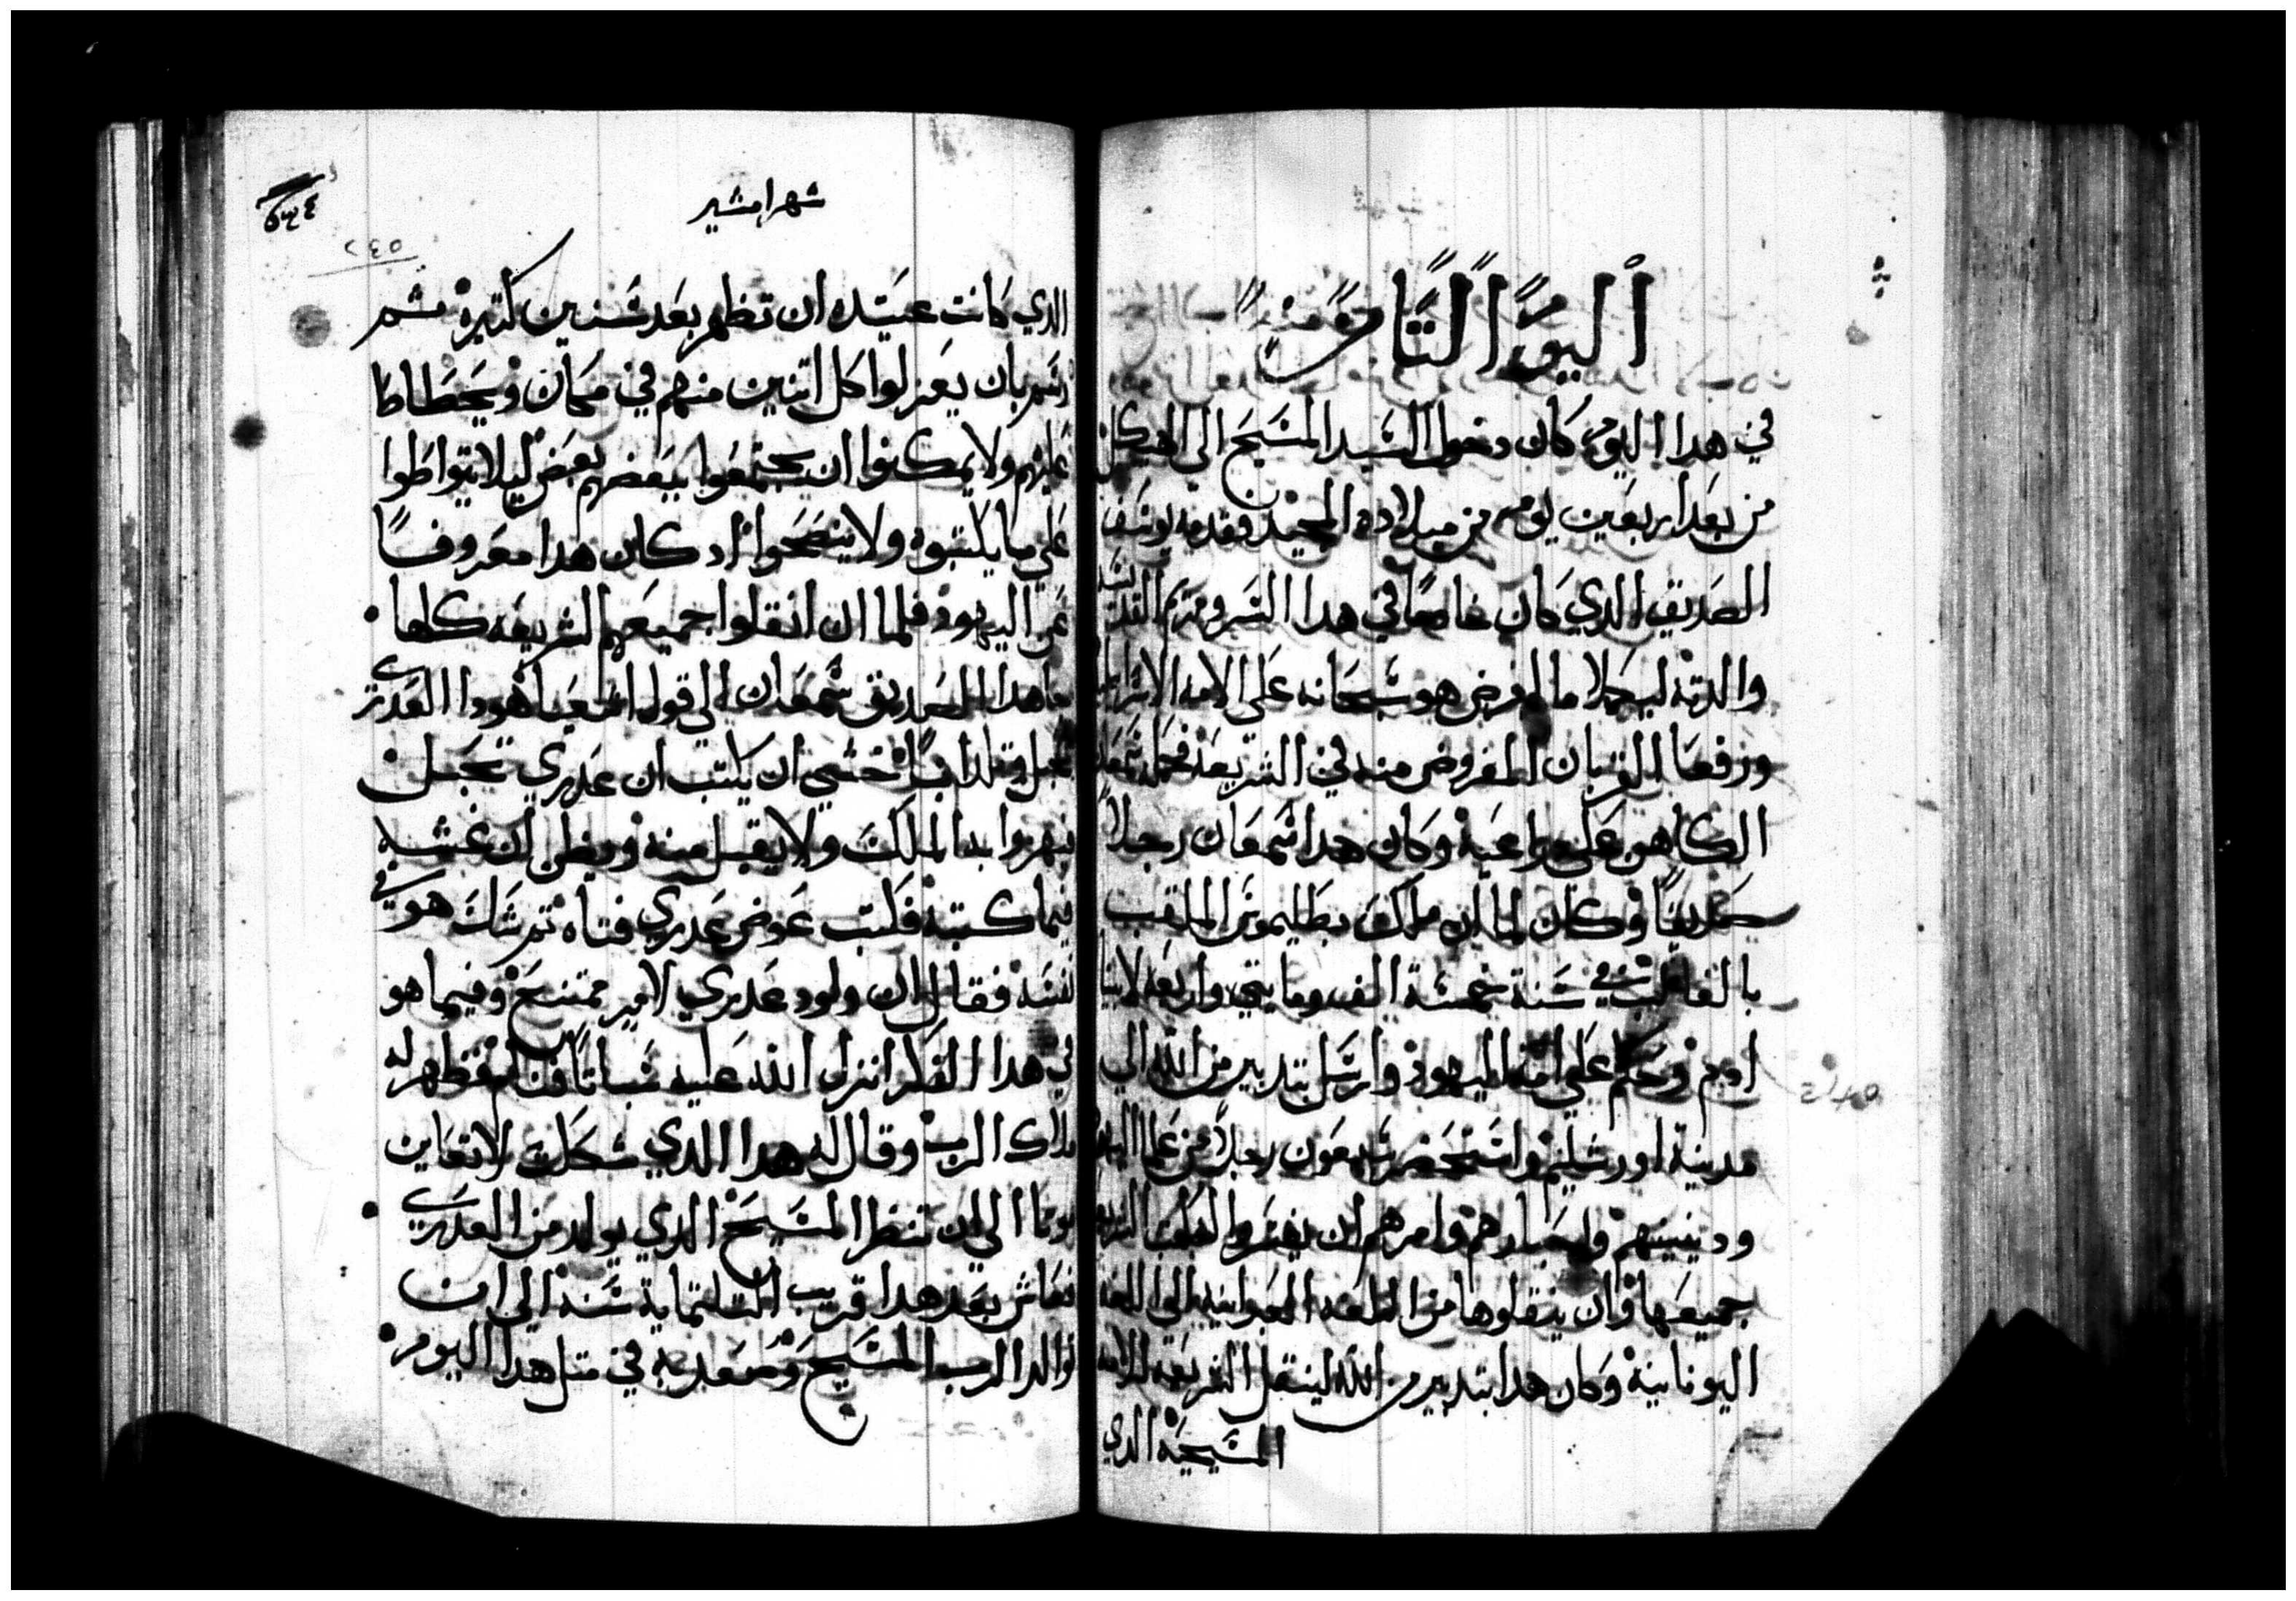 اليوم التامن منه
في هدا اليوم كان دخول السيد المسيح الى الهيكل
من بعد اربعين يوم من ميلاده المجيد وقدمه يوسف
الصديق الدي كان خادمًا في هدا السر ومريم
والدته ليكملا ما فرض هو سبحانه على الامه
ورفعا القربان المفروض منه في الشريعه فحمله سمعان
الكاهن على دراعيه وكان هدا سمعان رجلاً
صديقاً وكان لما ان ملك بطليموس الملقب
بالغالب في سنة خمسة الف ومايتي واربعه
ادم وحكم على امة اليهود وارسل بتدبير من الله الي
مدينة اورشليم واستحضر سبعون رجلاً من علما
ودينيينهم واحبارهم وامرهم ان يفسروا
جميعها وان ينقلوها من اللغه العبرانيه الى اللغه
اليونانية وكان هدا بتدبير من الله لينقل الشريعه للامه
المسيحيه الدي
شهر امشير
٢٤٥
الدي كانت عتيده ان تظهر بعد سنين كتيره تم
رسم بان يعزلوا كل اتنين منهم في مكان ويحتطاطا
عليهم ولا يمكنوا ان يجتمعوا ببعضهم بعض ليلا يتواطوا
على ما يكتبوه ولا ينصحوا اد كان هدا معروفاً
عن اليهود فلما ان انقلوا جميعهم الشريعه كلها
ما هدا الصديق سمعان الي قول اشعيا هودا العدري
تحبل وتلد ابناً خشي ان يكتب ان عدري تحبل
فيهزوا به الملك ولا يقبل منه ويظن ان غشه
فيما كتبه فكتب عوض عدري فتاه تم شك هو في
نفسه فقال ان ولود عدري لامر ممتنع وفيما هو
في هدا الفكر انزل الله عليه سباتاً فنام فظهر له
ملاك الرب وقال له هدا الدي شككت لا تعاين
موتا الي ان تنظر المسيح الدي يولد من العدري
فعاش بعد هدا قريب التلتماية سنه الي ان
ولد الرب المسيح وصعد به في متل هدا اليوم